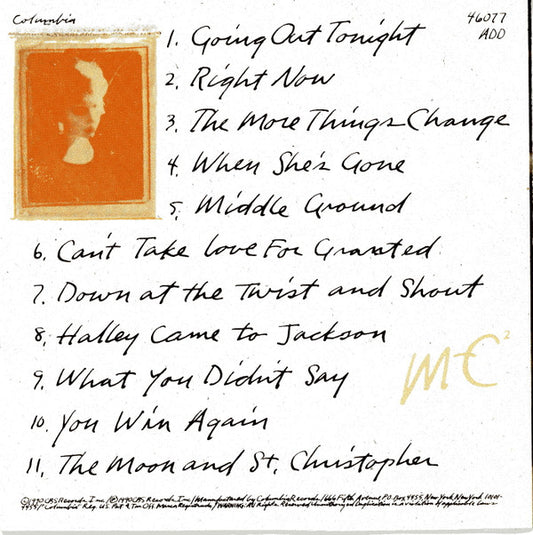 Columbia
46077
ADD
1. Going Out Tonight
2. Right Now
3. The More Things Change
4. When She's Gone
5. Middle Ground
6. Can't Take Love For Granted
7. Down at the Twist and Shout
8. Halley Came to Jackson
9. What You Didn't Say
10. You Win Again
11. The Moon and St. Christopher
MC²
©1990 CBS Records Inc./℗1990 CBS Records Inc./Manufactured by Columbia Records/666 Fifth Avenue P.O. Box 4455, New York, New York 10101-
4455/"Columbia" Reg. U.S. Pat. & Tm. Off. Marca Registrada./WARNING: All Rights Reserved. Unauthorized duplication is a violation of applicable laws.